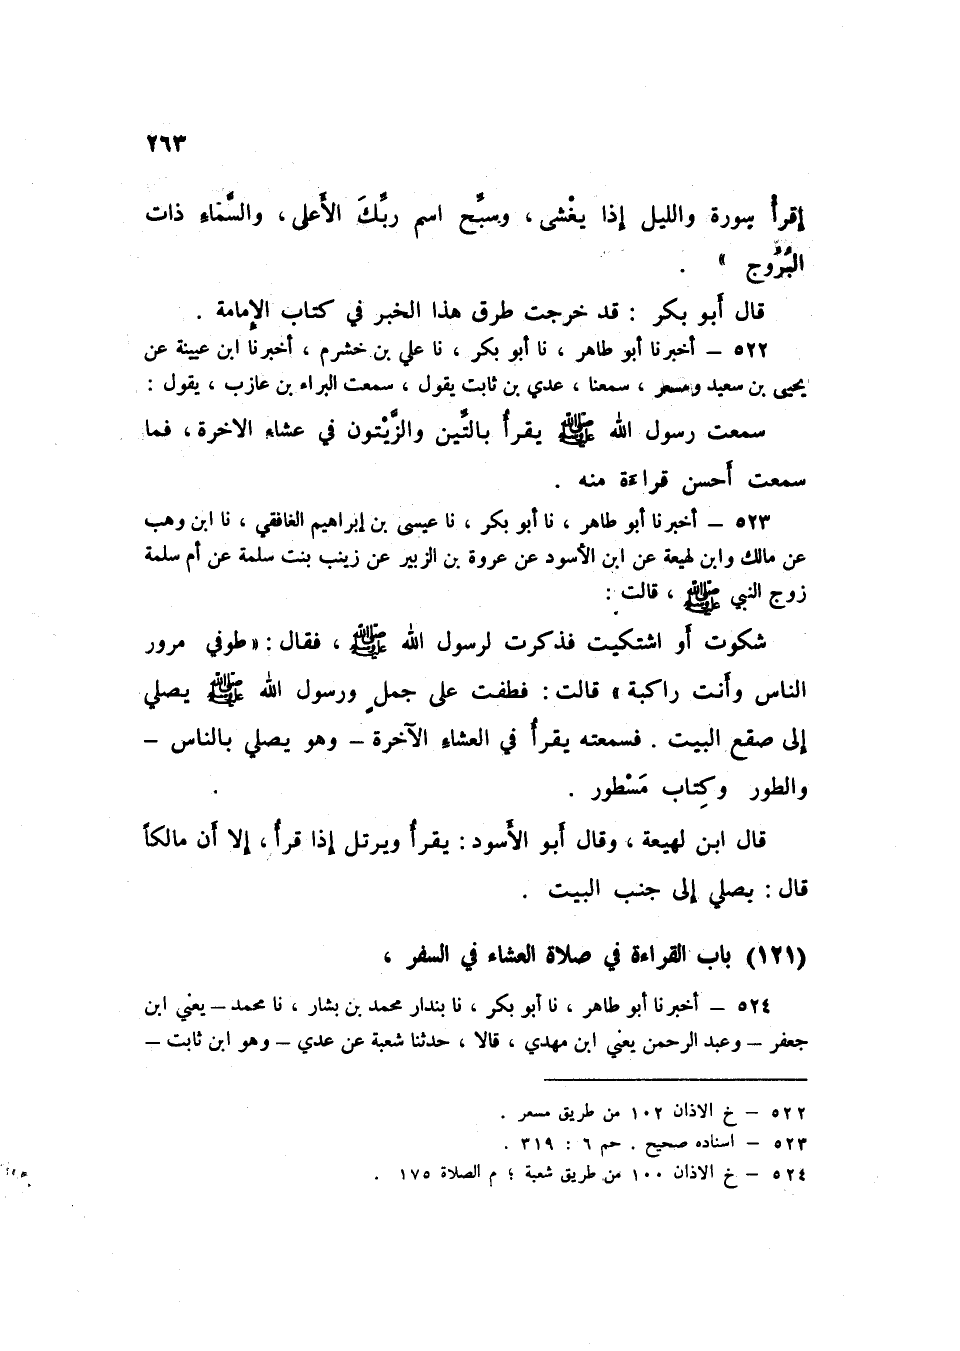 ٢٦٣
إقرأ سورة والليل إذا يغْشى ، وسبِّح اسم ربِّكَ الأَعلى ، والسَّمَاءِ ذات
البُرُوج » .
قال أَبو بكر : قد خرجت طرق هذا الخبر في كتاب الإمامة .
٥٢٢ – أخبرنا أبو طاهر ، نا أبو بكر ، نا علي بن خشرم ، أخبرنا ابن عيينة عن
يحيى بن سعيد ومسعر ، سمعنا ، عدي بن ثابت يقول ، سمعت البراء بن عازب ، يقول :
سمعت رسول الله ﷺ يقرأُ بالتِّين والزَّيْتون في عشاء الاخرة ، فما
سمعت أَحسن قراءة منه .
٥٢٣ – أخبرنا أبو طاهر ، نا أبو بكر ، نا عيسى بن إبراهيم الغافقي ، نا ابن وهب
عن مالك وابن لهيعة عن ابن الأسود عن عروة بن الزبير عن زينب بنت سلمة عن أم سلمة
زوج النبي ﷺ ، قالت :
شكوت أَو اشتكيت فذكرت لرسول الله ﷺ ، فقال : « طوفي مرور
الناس وأَنت راكبة » قالت : فطفت على جملٍ ورسول الله ﷺ يصلي
إلى صقع البيت . فسمعته يقرأُ في العشاء الآخرة – وهو يصلي بالناس –
والطور وكِتاب مَسْطور .
قال ابن لهيعة ، وقال أَبو الأَسود : يقرأُ ويرتل إذا قرأَ ، إلا أَن مالكاً
قال : يصلي إلى جنب البيت .
(١٢١) باب القراءة في صلاة العشاء في السفر ،
٥٢٤ – أخبرنا أبو طاهر ، نا أبو بكر ، نا بندار محمد بن بشار ، نا محمد – يعني ابن
جعفر – وعبد الرحمن يعني ابن مهدي ، قالا ، حدثنا شعبة عن عدي – وهو ابن ثابت –
٥٢٢ – خ الاذان ١٠٢ من طريق مسعر .
٥٢٣ – اسناده صحيح . حم ٦ : ٣١٩ .
٥٢٤ – خ الاذان ١٠٠ من طريق شعبة ؛ م الصلاة ١٧٥ .